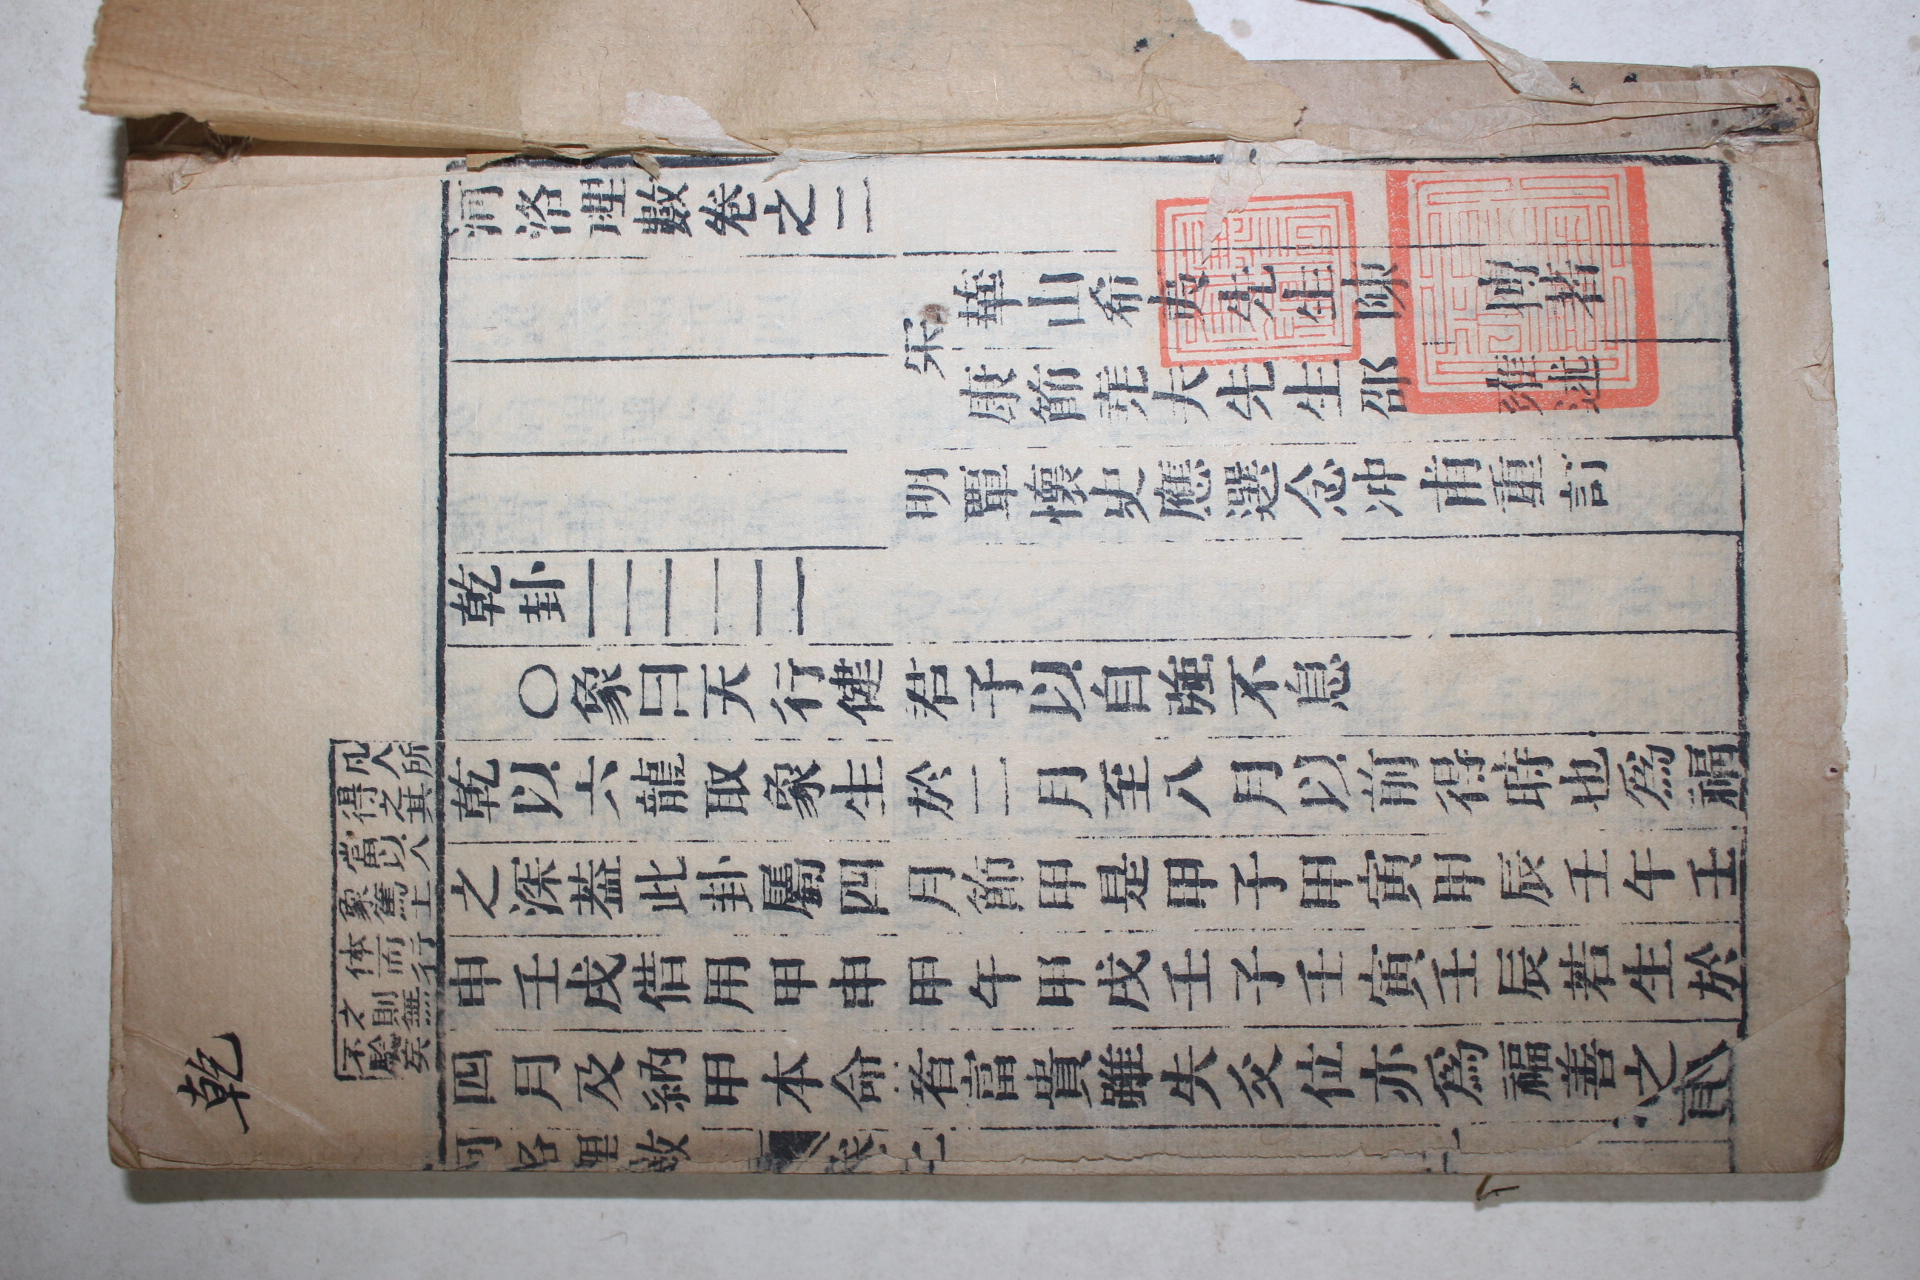 河洛理數卷之二
宋
華山希夷先生陳 摶著
康節堯夫先生邵 雍述
明覃懷史應選念冲甫重訂
乾卦
〇象曰天行健君子以自強不息
乾以六龍取象生於二月至八月以前得時也爲福
之深葢此卦屬四月節甲是甲子甲寅甲辰壬午壬
申壬戌借用甲申甲午甲戌壬子壬寅壬辰若生於
四月及納甲本命者富貴雖失爻位亦爲福善之
貳
凡人所
得之其
當以人
象舊上
体而行
之則無
不驗矣
乾
河洛理數